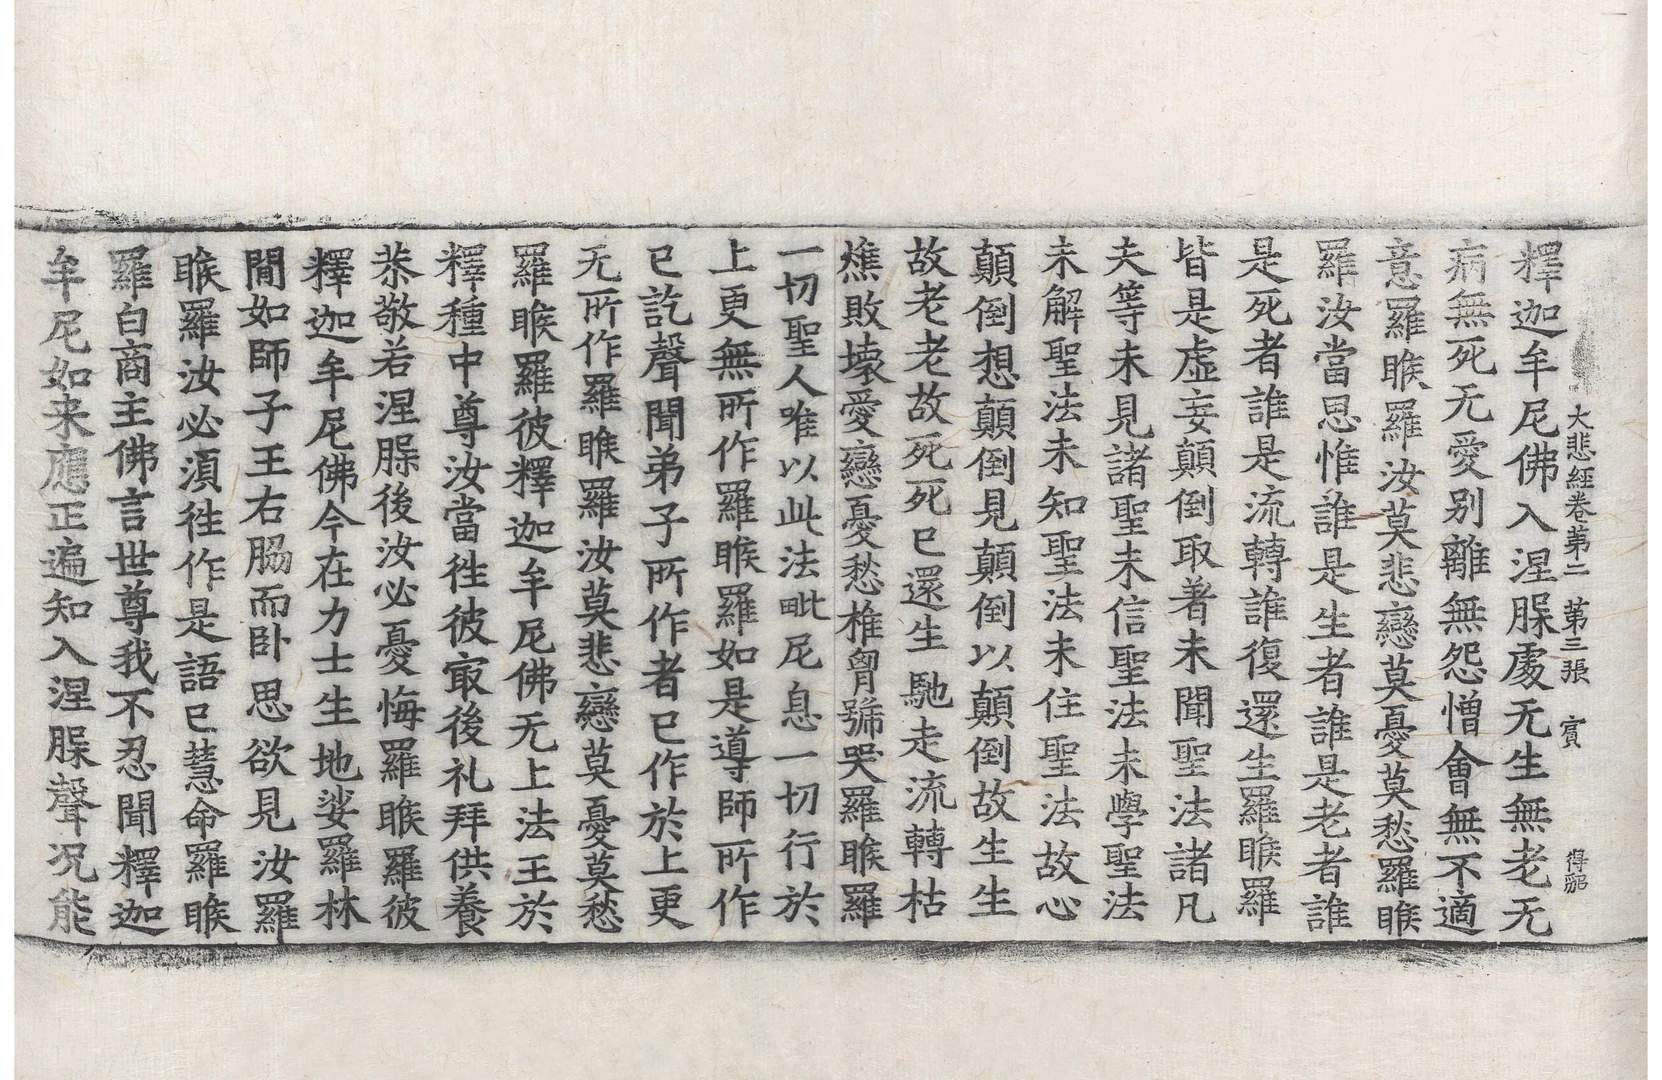 大悲經卷第二　第三張　賓　得
釋迦牟尼佛入涅槃處无生無老无
病無死无愛别離無怨憎會無不適
意羅睺羅汝莫悲戀莫憂莫愁羅睺
羅汝當思惟誰是生者誰是老者誰
是死者誰是流轉誰復還生羅睺羅
皆是虛妄顛倒取著未聞聖法諸凡
夫等未見諸聖未信聖法未學聖法
未解聖法未知聖法未住聖法故心
顛倒想顛倒見顛倒以顛倒故生生
故老老故死死已還生馳走流轉枯
燋敗壞愛戀憂愁椎胷號哭羅睺羅
一切聖人唯以此法毗尼息一切行於
上更無所作羅睺羅如是導師所作
已訖聲聞弟子所作者已作於上更
无所作羅睺羅汝莫悲戀莫憂莫愁
羅睺羅彼釋迦牟尼佛无上法王於
釋種中尊汝當往彼㝡後礼拜供養
恭敬若涅槃後汝必憂悔羅睺羅彼
釋迦牟尼佛今在力士生地娑羅林
間如師子王右脇而卧思欲見汝羅
睺羅汝必湏往作是語已慧命羅睺
羅白商主佛言世尊我不忍聞釋迦
牟尼如来應正遍知入涅槃聲况能